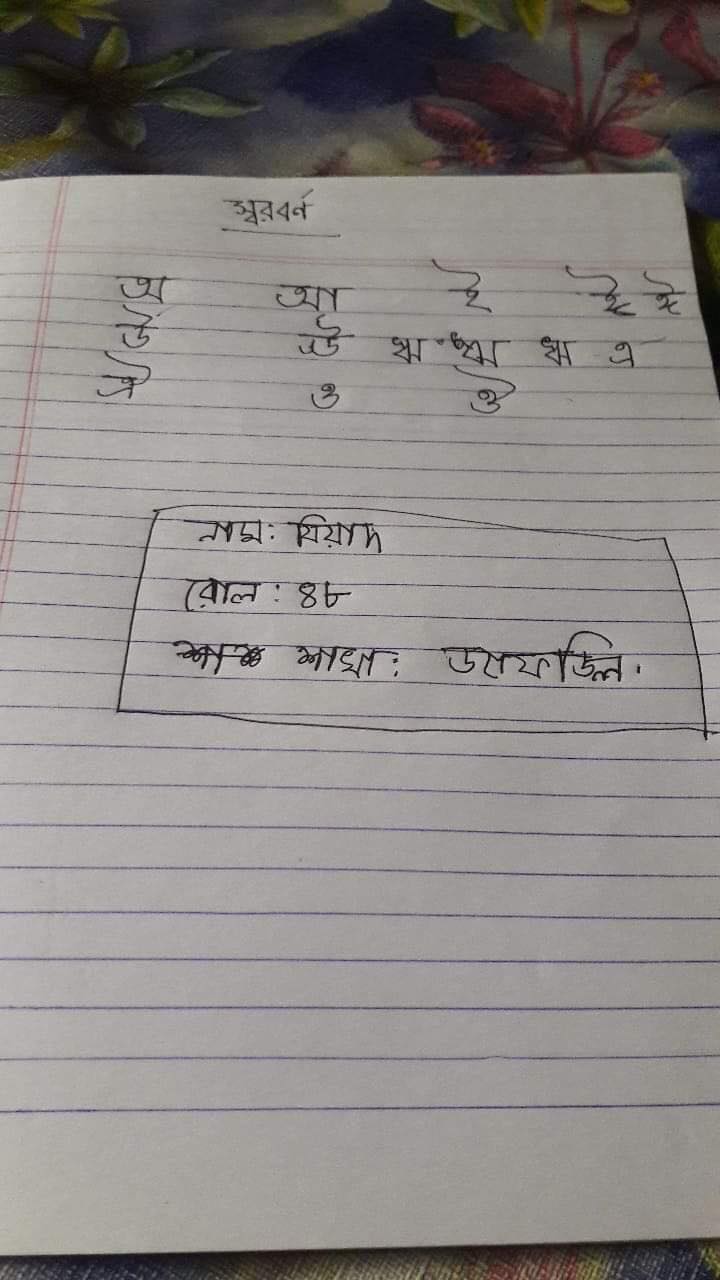 স্বরবর্ন
অ আ ই ঈ ঈ
উ ঊ ঋ ঋ ঋ এ
ঐ ও ঔ
নাম: যিয়াদ
রোল: ৪৮
শাখা: ডযাফোডিল.